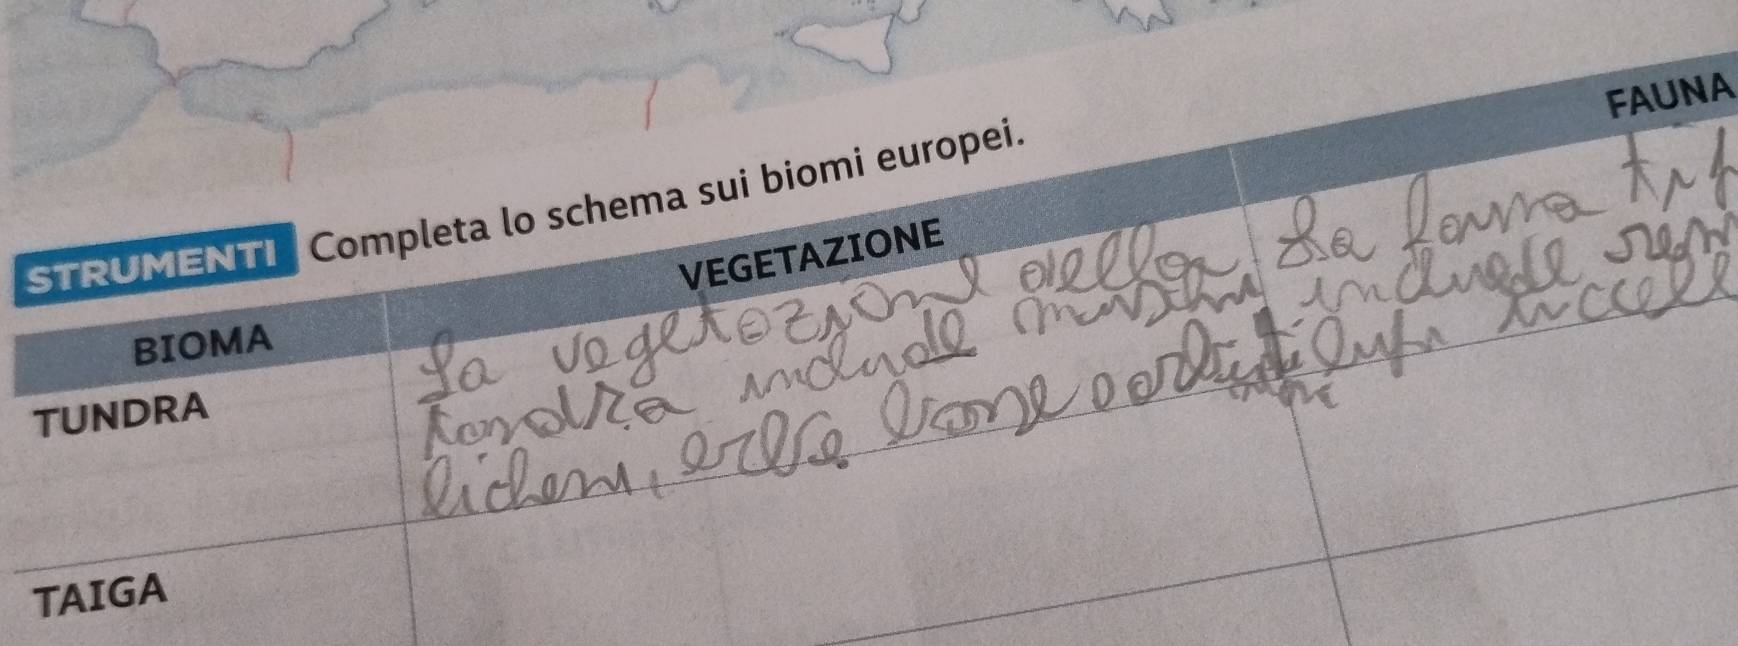 STRUMENTI Completa lo schema sui biomi europei.
BIOMA VEGETAZIONE FAUNA
TUNDRA
La vegetazione della
tondra include muschi
licheni, erbe
La fauna
include
lupi uccell
TAIGA